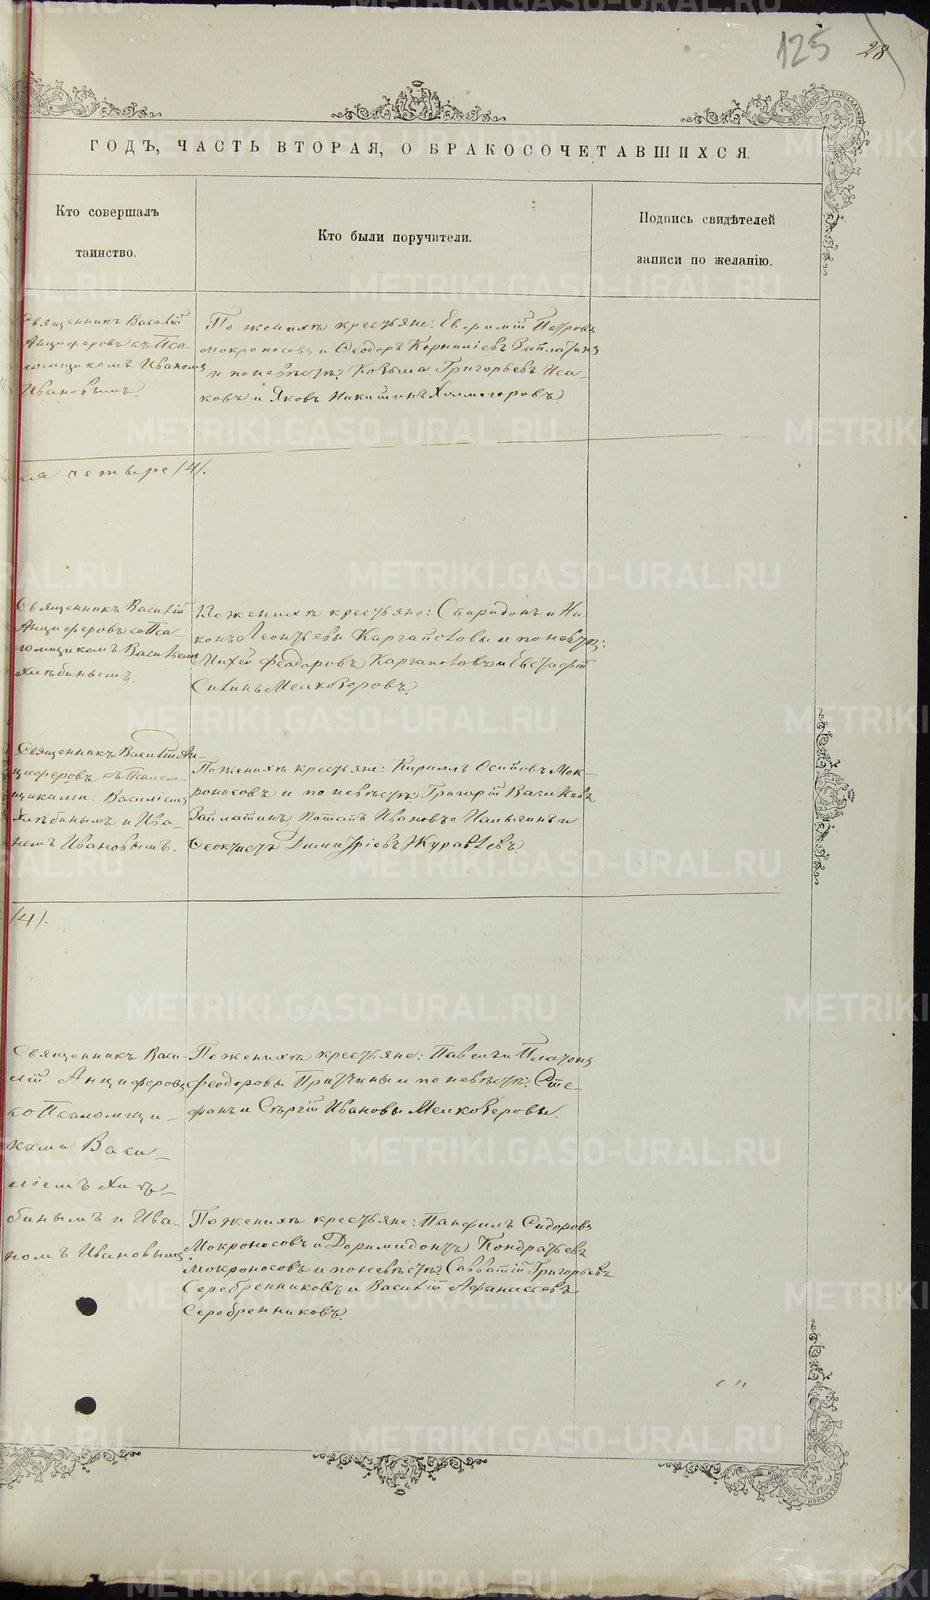 125
28
ГОДЪ, ЧАСТЬ ВТОРАЯ, О БРАКОСОЧЕТАВШИХСЯ.
Кто совершалъ
таинство.
Кто были поручители.
Подпись свидѣтелей
записи по желанію.
Священникъ Василій
Анциферовъ съ Пса-
ломщикомъ Иваномъ
Ивановымъ.
По женихѣ крестьяне: Евфимій Петровъ
Мокроносовъ и Ѳеодоръ Корниліевъ Зайлатинъ
и по невѣстѣ: Козьма Григорьевъ Иса-
ковъ и Яковъ Никитинъ Холмогоровъ.
четыре /4/.
Священникъ Василій
Анциферовъ со Пса-
ломщикомъ Василіемъ
Хлѣбинымъ.
По женихѣ крестьяне: Спиридонъ и Ни-
конъ Леонтьевы Каргаполовы и по невѣстѣ:
Михей Феодоровъ Каргаполовъ и Евстафій
Силинъ Мелкозеровъ.
Священникъ Василій Ан-
циферовъ съ Псалом-
щиками: Василіемъ
Хлѣбинымъ и Ива-
номъ Ивановымъ.
По женихѣ крестьяне: Кириллъ Осиповъ Мок-
роносовъ и по невѣстѣ: Григорій Васильевъ
Зайлатинъ, Потапъ Ивановъ и
Ѳеоктистъ Димитріевъ Журавлевъ.
/4/.
Священникъ Васи-
лій Анциферовъ
со Псаломщи-
ками Васи-
ліемъ Хлѣ-
бинымъ и Ива-
номъ Ивановымъ
По женихѣ крестьяне: Павелъ и Платонъ
Феодоровы и по невѣстѣ: Сте-
фанъ и Сергій Ивановы Мелкозеровы.
По женихѣ крестьяне: Панфилъ Сидоровъ
Мокроносовъ и Доримидонтъ Кондратьевъ
Мокроносовъ и по невѣстѣ: Савватій Григорьевъ
Серебренниковъ и Василій Афанасьевъ
Серебренниковъ.
METRIKI.GASO-URAL.RU